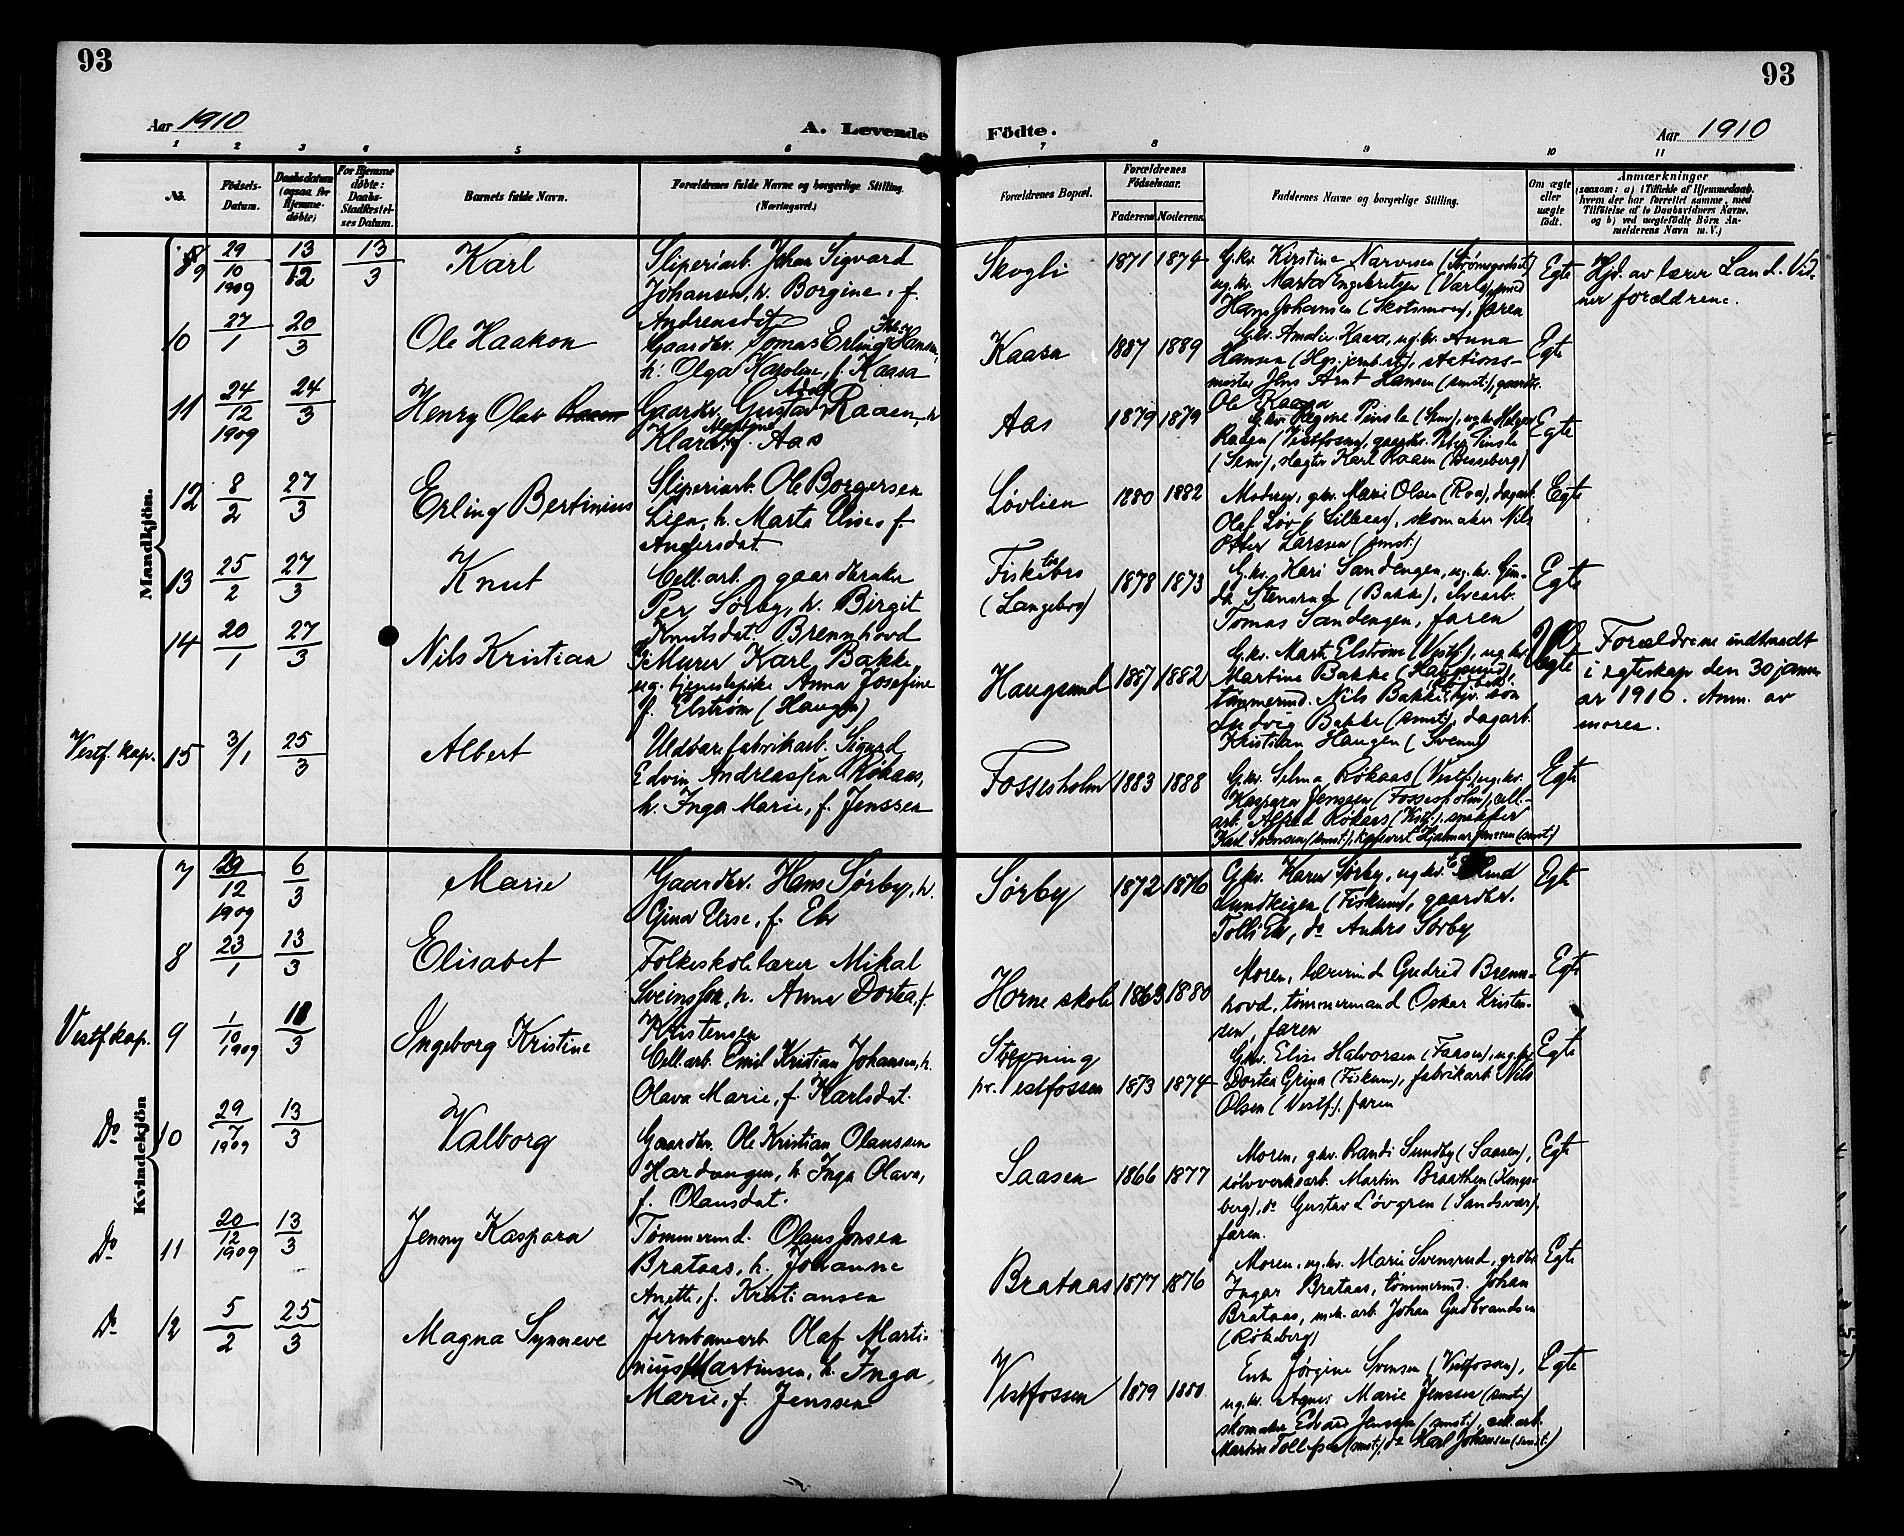 93
93
Aar 1910
A. Levende
Födte.
Aar 1910
1 2 3 4 5 6 7 8 9 10 11
No.
Födsels-Datum.
Daabsdatum (ogsaa for Hjemmedöbte)
For Hjemmedöbte: Daabs-Stadfæstelses Datum.
Barnets fulde Navn.
Forældrenes fulde Navne og borgerlige Stilling. (Næringsvei.)
Forældrenes Bopæl.
Forældrenes Födselsaar.
Faderens Moderens
Faddernes Navne og borgerlige Stilling.
Om ægte eller uægte födt.
Anmærkninger
(saasom: a) i Tilfælde af Hjemmedaab, hvem der har forrettet samme, med Tilföielse af to Daabsvidners Navne, og b) ved uegtefödte Börn Anmelderens Navn m. V.)
Mandkjön.
9 29/10 1909 13/12 13/3 Karl
Sliperiarb. Johan Sigvard
Johansen, h. Borgine, f.
Andreasdat.
Skogli 1871 1874
Gkv. Kirstine Narvesen (Strømsgodset)
ug. kv. Marta Engebretsen
Hans Johansen (Skotsmoen), faren
Egte
Hjd. av lærer Land. Vidner forældrene.
10 27/1 20/3 Ole Haakon
Gaardbr. Tomas Erling Hansen,
h. Olga Karoline, f. Kaasa
Kaasa 1887 1889
Gkv. Amalie Kaasa, ug. kv. Anna
Hansen (Hgs. jernb. st.), stationsmester
Jens Arnt Hansen (smst.), gaardbr.
Ole Kaasa
Egte
11 24/12 1909 24/3 Henry Olav Raaen
Gaardbr. Gustav Adolf Raaen, h.
Klara f. Aas
Aas 1879 1879
Gkv. Regine Tinsle (Sem), ug. kv. Helga
Raaen (Vestfossen), gaardbr. Peter Tinsle
(Sem), slagter Karl Raaen (Hesseberg)
Egte
12 8/2 27/3 Erling Bertinius
Sliperiarb. Ole Borgersen
Lien, h. Marta Elise, f.
Andersdat.
Løvlien 1880 1882
Moderen, gkv. Marie Olsen (Roa), dagarb.
Olaf Løv, skomaker Nils
Petter Larsen (smst.)
Egte
13 25/2 27/3 Knut
Cell. arb. gaardbruker
Per Sørby, h. Birgit
Knutsdat. Brennhovd
Fiskebro
(Langebro) 1878 1873
Gkv. Kari Sandengen, ug. kv. Gunda
Stensrud (Bakke),
Tomas Sandengen, faren
Egte
14 20/1 27/3 Nils Kristian
Murer Karl Bakke,
ug. tjenestepike Anna Josefine
f. Elstrøm (Haugen)
Haugsund 1887 1882
Gkv. Marte Elstrøm (Vestf.), ug. kv.
Martine Bakke (Haugsund),
tømmermd. Nils Bakke, hjv. søn
Ludvig Bakke (smst.), dagarb.
Kristian Haugen (Svenne)
Uegte
Forældrene indtraadt
i egteskap den 30 januar
1910. Anm. av
moren.
Vestf. kap. 15 3/1 25/3 Albert
Uldvarefabrikarb. Sigurd
Edvin Andreassen Røkaas,
h. Inga Marie, f. Jenssen
Fossesholm 1883 1888
Gkv. Selma Røkaas (Vestf.) ug. kv.
Kaspara Jenssen (Fossesholm), cell.
arb. Alfred Røkaas (Vestf.),
Karl Svensen (smst.), Hjalmar Jenssen (smst.)
Egte
Kvindekjön
7 29/12 1909 6/3 Marie
Gaardbr. Hans Sørby, h.
Gina Elise, f. Eker
Sørby 1872 1876
Gkv. Karen Sørby, ug. kv.
Lundteigen (Fiskum), gaardbr.
, do Anders Sørby
Egte
8 23/1 13/3 Elisabet
Folkeskolelærer Mikal
Sveinsson, h. Anna Dortea, f.
Kristensen
Horne skole 1863 1880
Moren, lærerinde Gudrid Brennhovd,
tømmermand Oskar Kristensen,
faren
Egte
Vestf. kap. 9 1/10 1909 13/3 Ingeborg Kristine
Cell. arb. Emil Kristian Johansen, h.
Olava Marie, f. Karlsdat.
pr. Vestfossen 1873 1874
Gkv. Elise Halvorsen, ug. kv.
Dortea Grina (Fiskum), fabrikarb. Nils
Olsen (Vestf.), faren
Egte
Do 10 29/7 1909 13/3 Valborg
Gaardbr. Ole Kristian Olaussen
Hardangen, h. Inga Olava,
f. Olausdat.
Saasen 1866 1877
Moren, gkv. Randi Sundby (Saasen),
sølvverksarb. Martin Braathen (Kongsberg),
do Gustav Løvgren (Sandsvær),
faren.
Egte
Do 11 20/12 1909 13/3 Jenny Kaspara
Tømmermd. Olaus Jonsen
Brataas, h. Johanne
Anette, f. Kristiansen
Brataas 1877 1876
Moren, ug. kv. Marie Svensrud, grdbr.
Ingar Brataas, tømmermd. Johan
Brataas, mek. arb. Johan Gudbrandsen
(Røkeberg)
Egte
Do 12 5/2 25/3 Magna Synneve
Jernbanearb. Olaf Martinius
Martinsen, h. Inga
Marie, f. Jenssen
Vestfossen 1879 1880
Enke Jørgine Svensen (Vestfossen),
ug. kv. Agnes Marie Jenssen (smst.)
skomaker Edvard Jenssen (smst.), cell. arb.
Martin Tollefsen (smst.), do Karl Johansen (smst.)
Egte